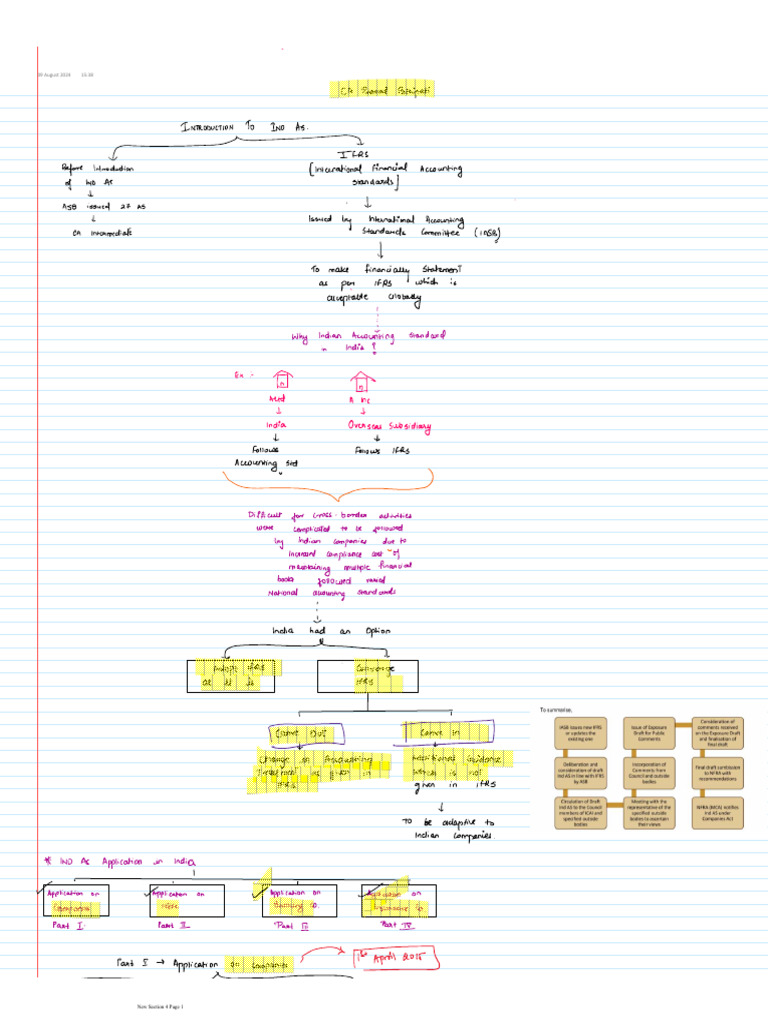 09 August 2024 15:30
INTRODUCTION TO IND AS.
Before Introduction
of IND AS
ASB issued 27 AS
CA Intermediate
IFRS
[International Financial Accounting
standards]
Issued by International Accounting
Standards Committee (IASB)
To make financially statement
as per IFRS which is
acceptable Globally
Why Indian Accounting Standard
in India?
Ex :-
A Ltd
India
Follows
Accounting std
A Inc
Overseas Subsidiary
Follows IFRS
Difficult for cross-border activities
were complicated to be followed
by Indian companies due to
increased compliance cost of
maintaining multiple financial
books followed
National accounting standards
India had an Option
Adopt IFRS
as it is
Converge
IFRS
Carve Out
Carve in
Change in Accounting
as given in
IFRS
Additional Guidance
which is not
given in IFRS
To be adaptive to
Indian Companies.
To summarise,
IASB issues new IFRS
or updates the
existing one
Deliberation and
consideration of draft
Ind AS in line with IFRS
by ASB
Circulation of Draft
Ind AS to the Council
members of ICAI and
specified outside
bodies
Meeting with the
representative of the
specified outside
bodies to ascertain
their views
Incorporation of
Comments from
Council and outside
bodies
Issue of Exposure
Draft for Public
Comments
Consideration of
comments received
on the Exposure Draft
and finalisation of
final draft
Final draft submission
to NFRA with
recommendations
NFRA (MCA) notifies
Ind AS under
Companies Act
IND AS Application in India
Application on
Companies
Part I
Application on
NBFC
Part II
Application on
Banking Co.
Part III
Application on
Insurance Co
Part IV
Part I → Application on Companies
1st April 2015
New Section 4 Page 1